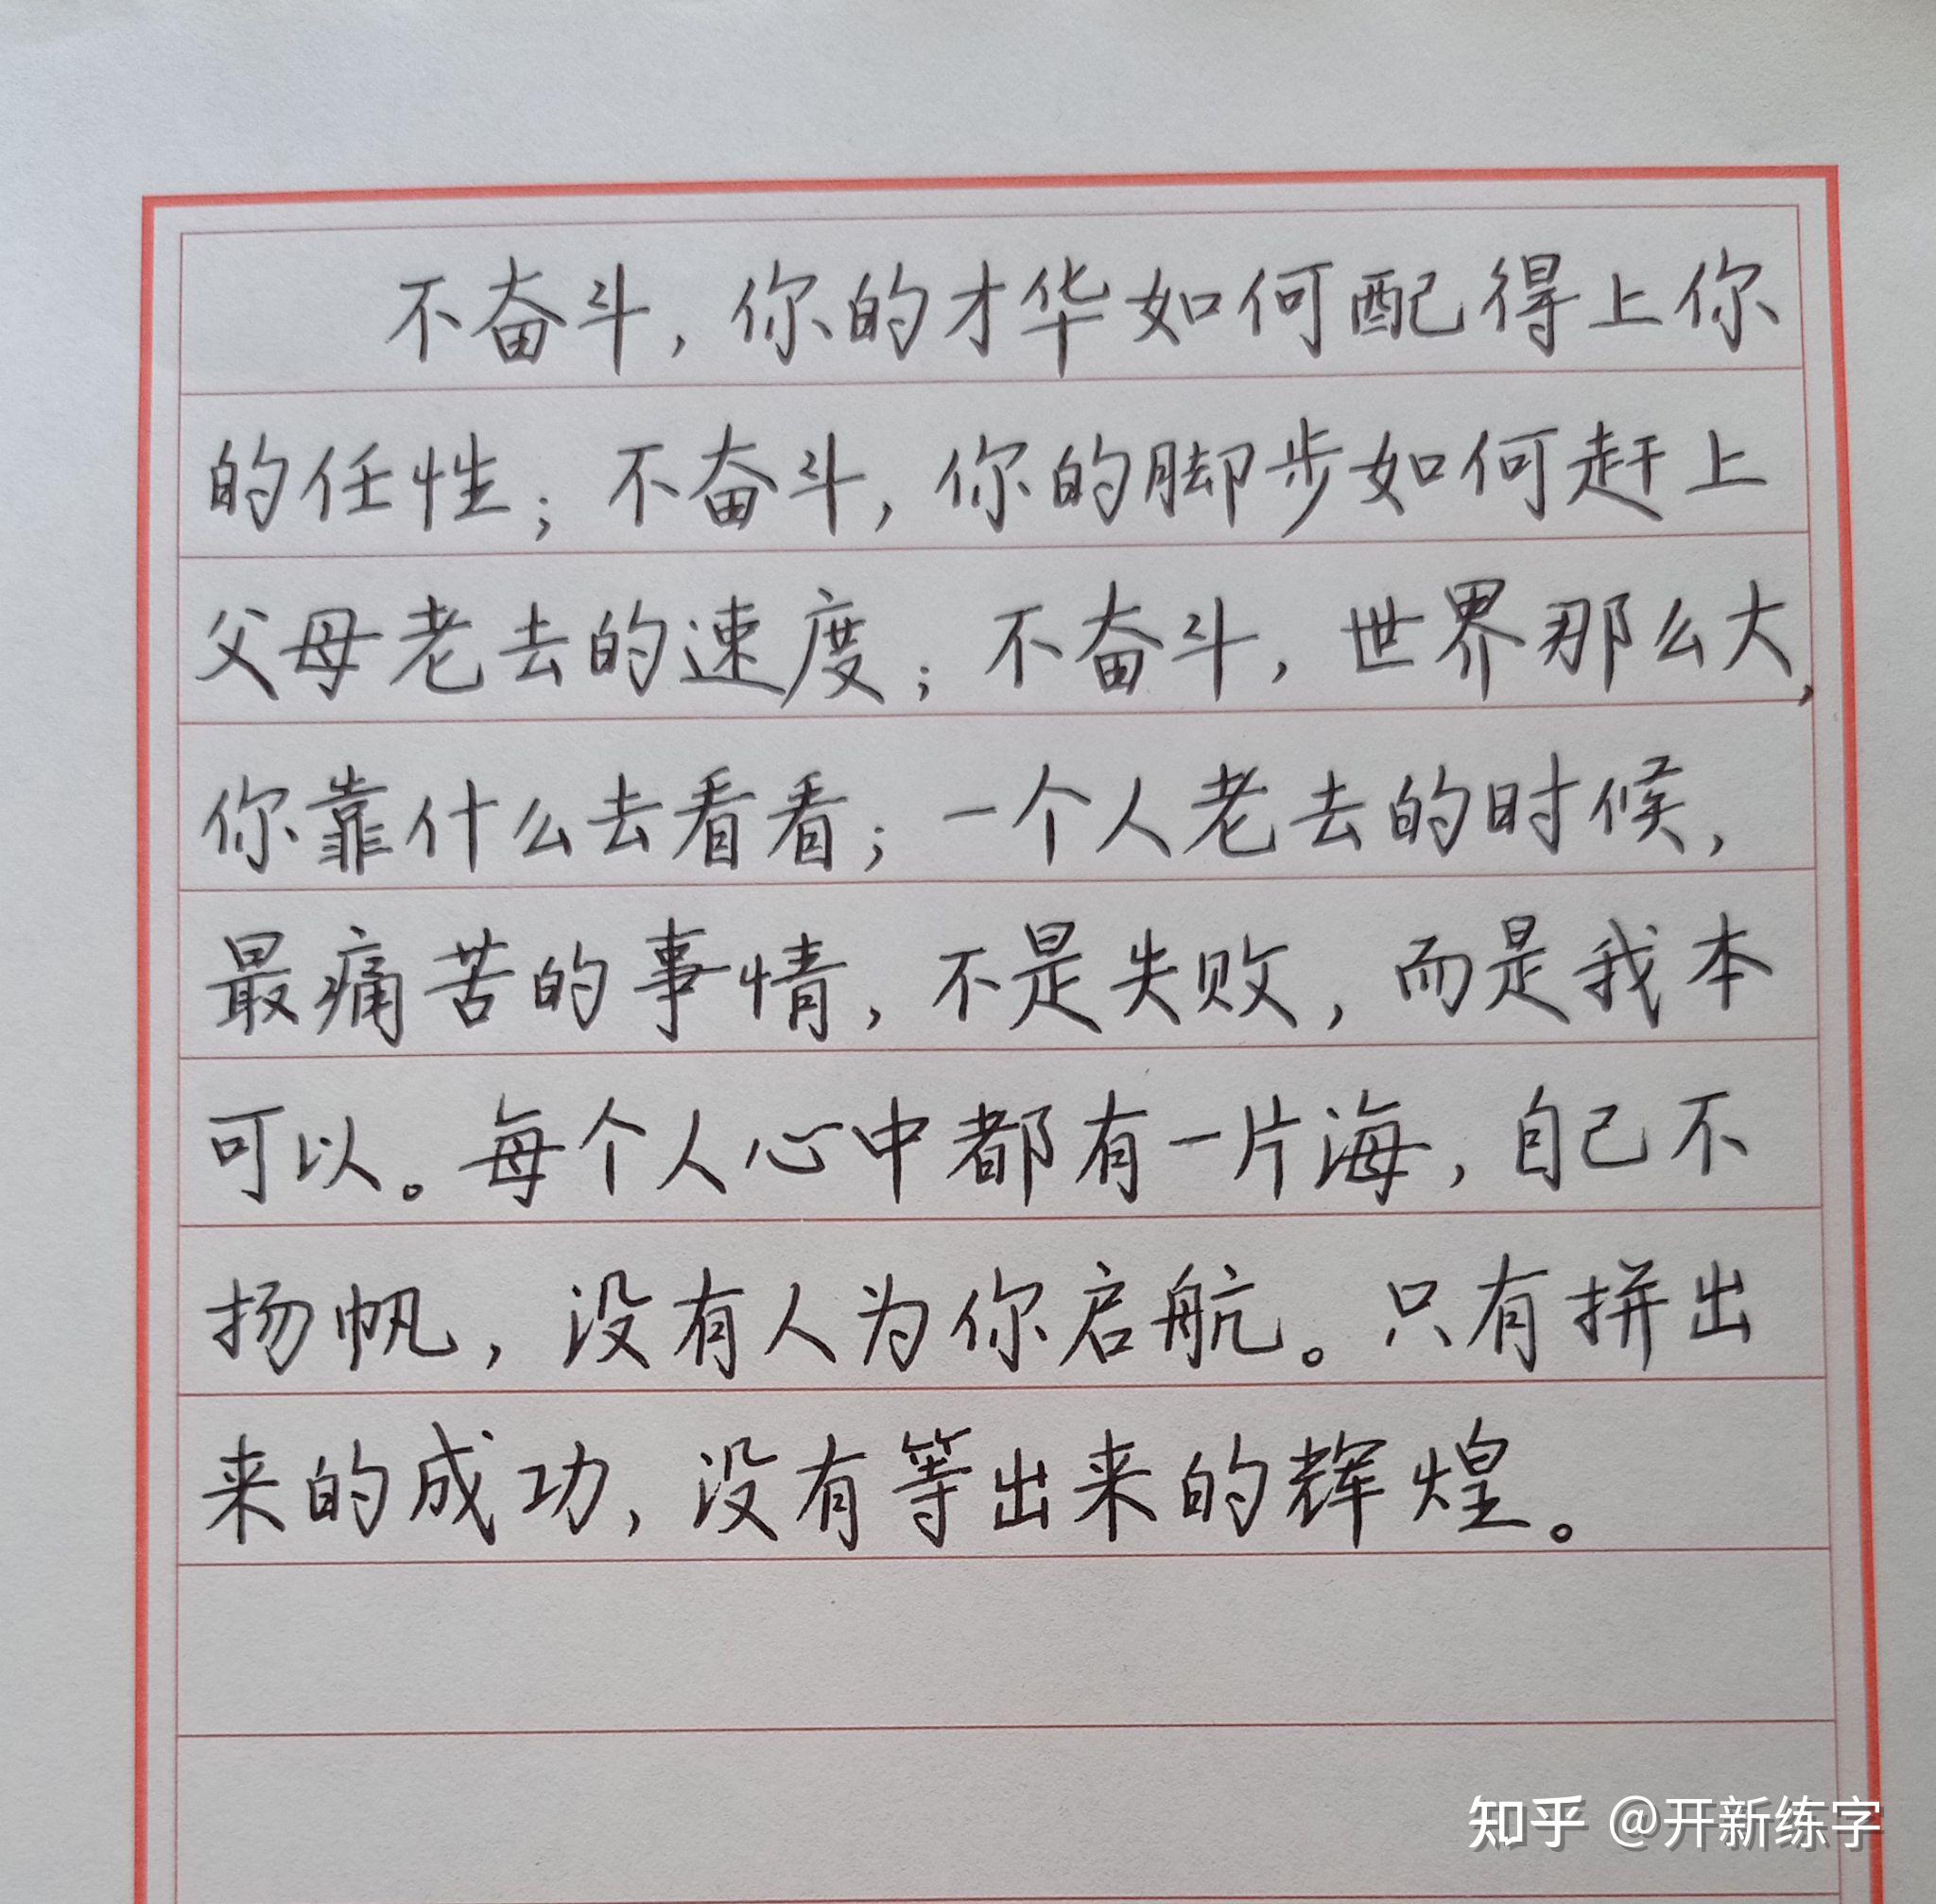 不奋斗，你的才华如何配得上你
的任性；不奋斗，你的脚步如何赶上
父母老去的速度；不奋斗，世界那么大，
你靠什么去看看；一个人老去的时候，
最痛苦的事情，不是失败，而是我本
可以。每个人心中都有一片海，自己不
扬帆，没有人为你启航。只有拼出
来的成功，没有等出来的辉煌。
知乎 @开新练字